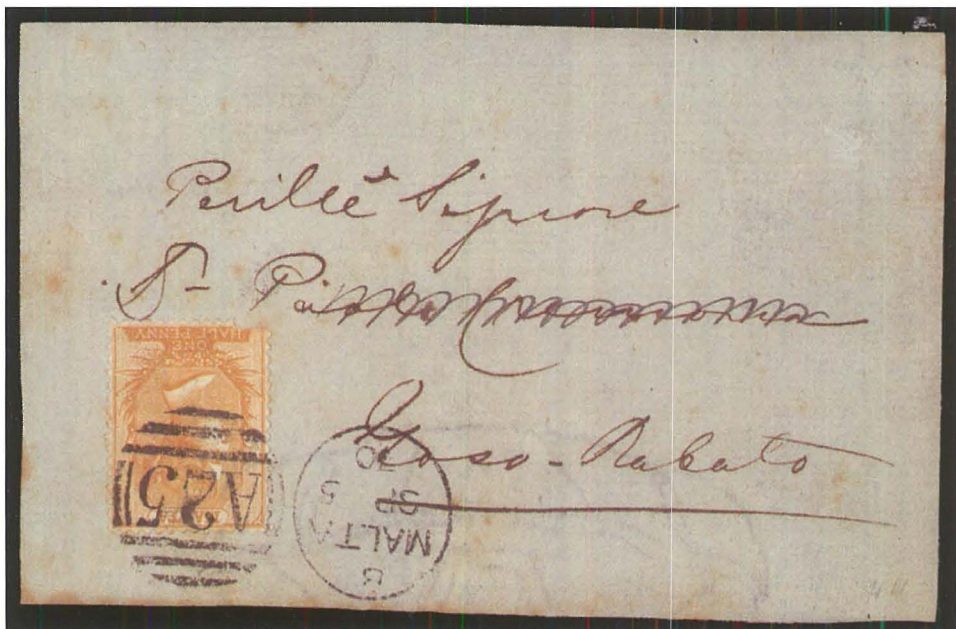 Perillẽ Signore
Sr
Gozo-Rabato
ONE
HALF PENNY
A25
B
MALTA
SP
5
80